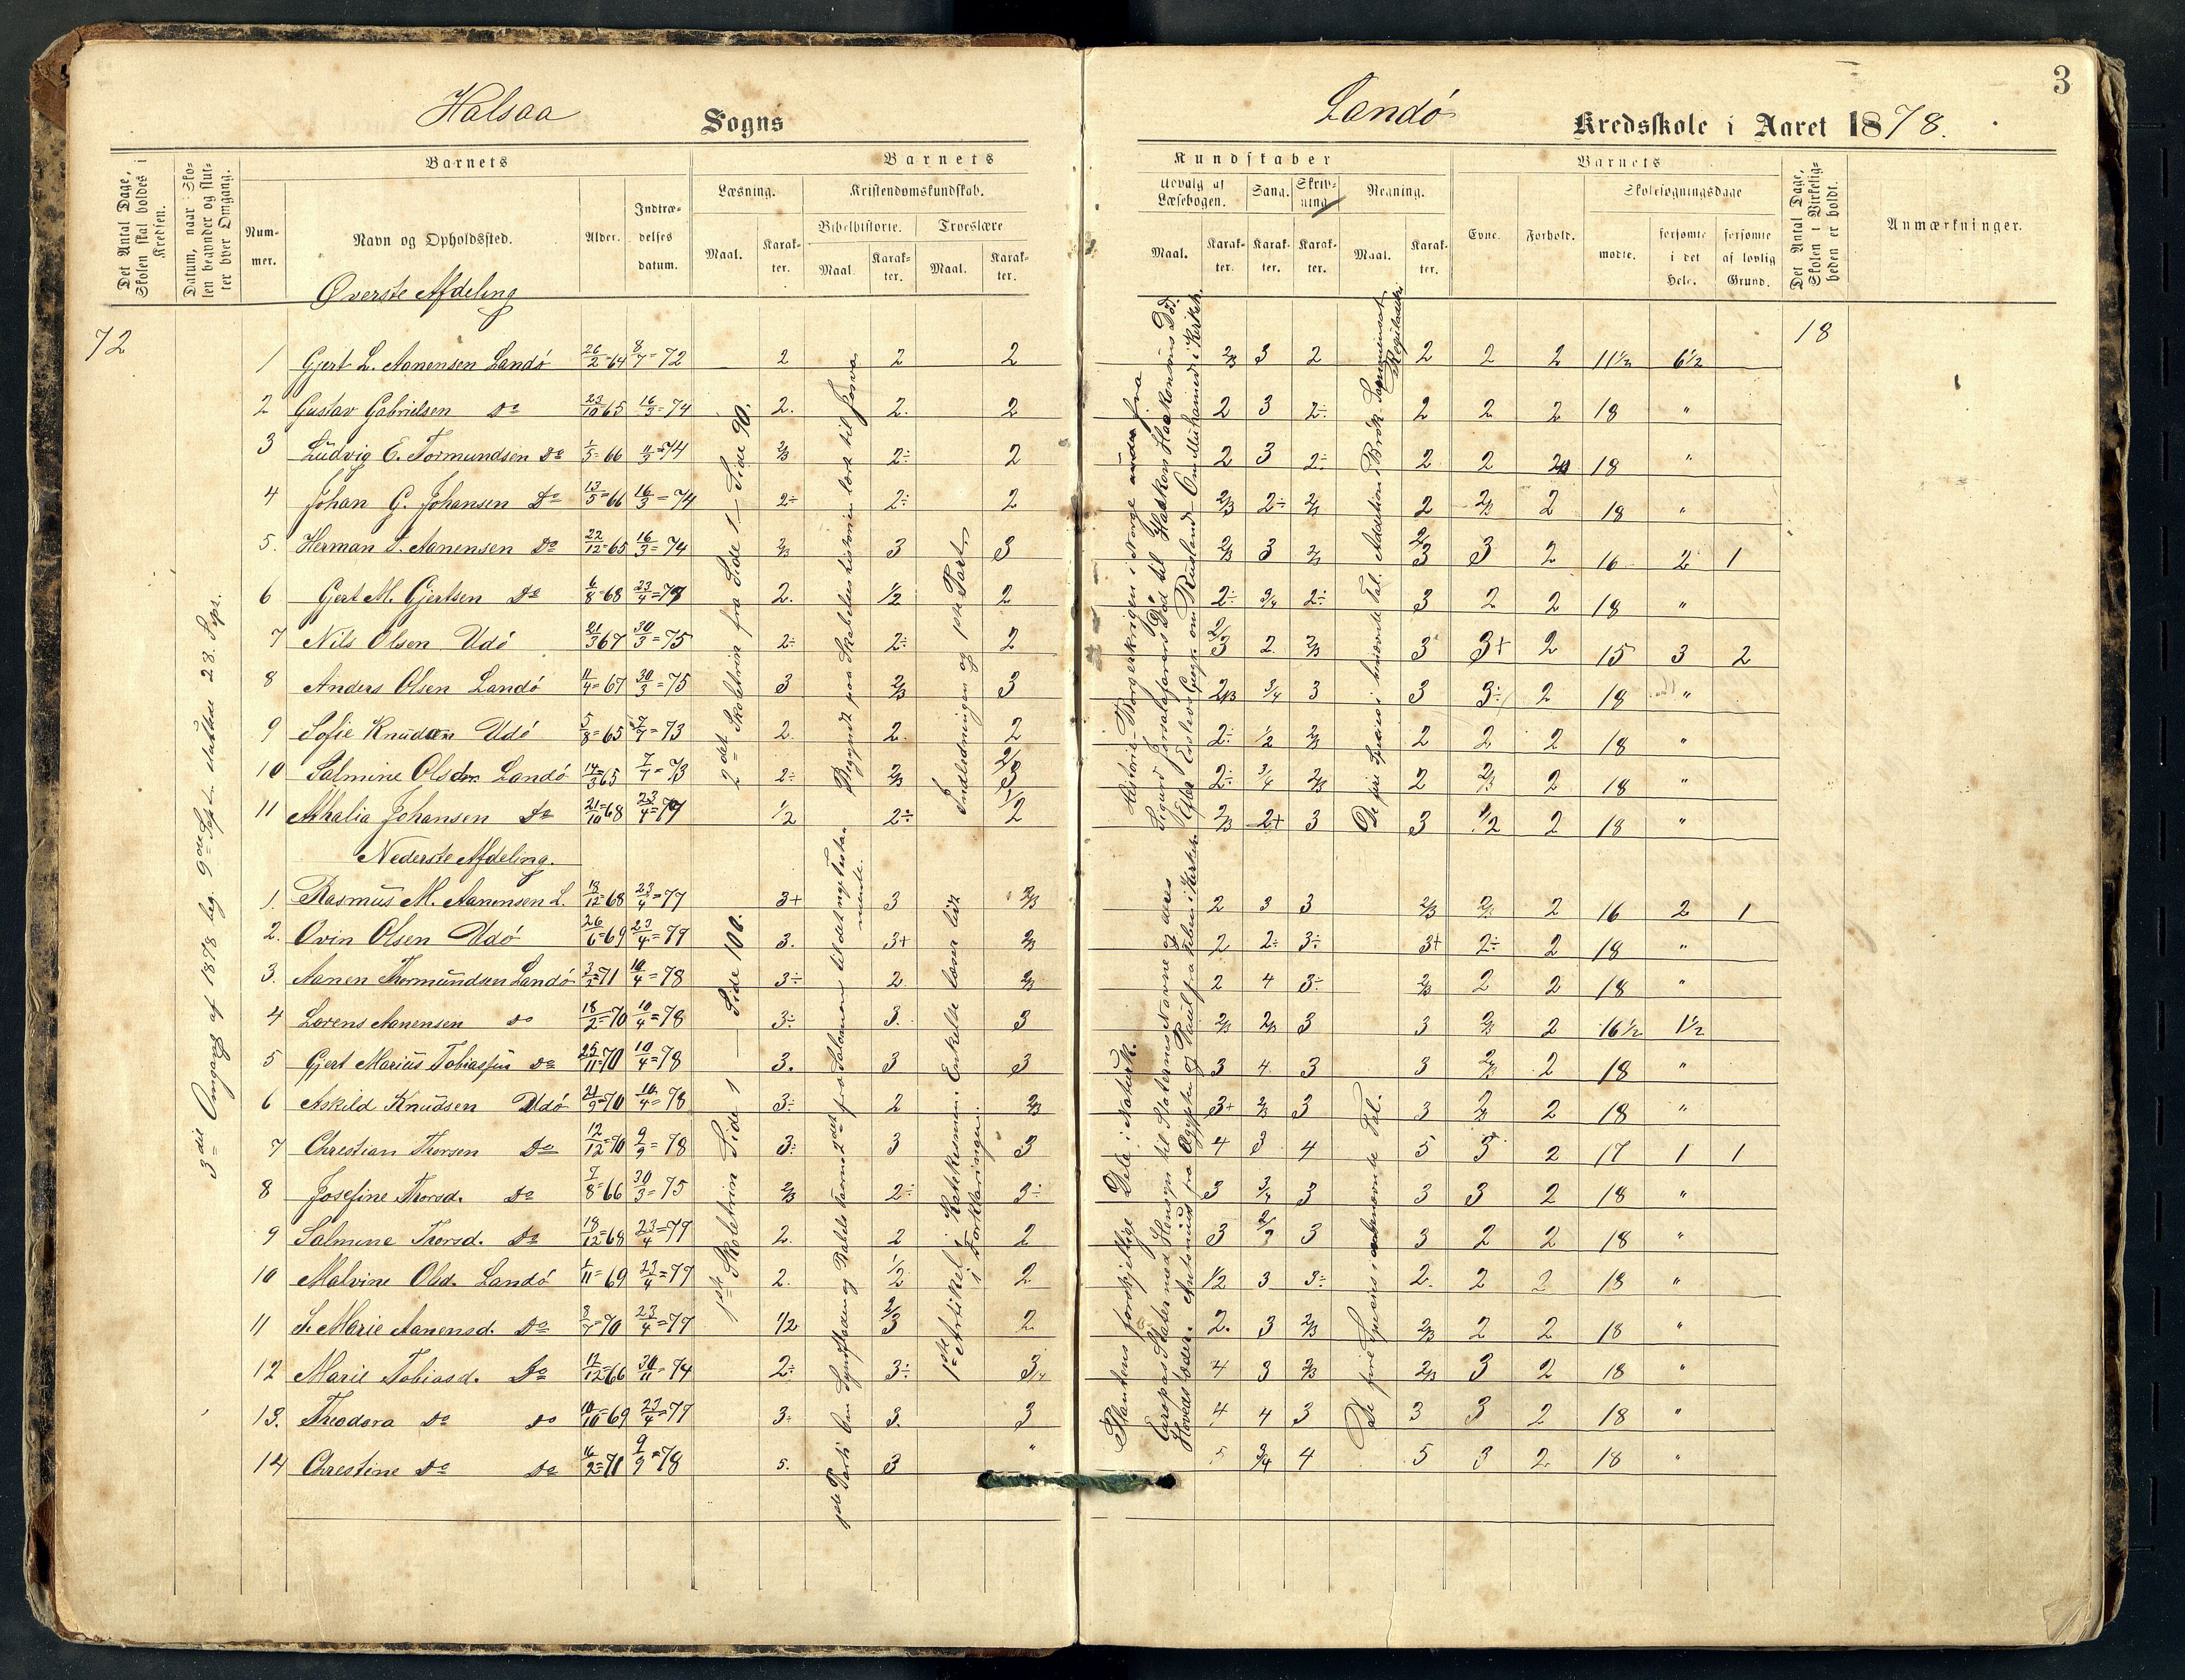 Halsaa Sogns
Landö Kredsskole i Aaret 1878.
3
Det Antal Dage, Skolen skal holdes i Kredsen.
Datum, naar Skolen begynder og slutter hver Omgang.
Barnets
Nummer.
Navn og Opholdssted.
Alder.
Indtrædelses datum.
Barnets
Læsning.
Maal. Karakter.
Kristendomskundskab.
Bibelhistorie. Troeslære
Maal. Karakter. Maal. Karakter.
Kundskaber
Udvalg af Læsebogen. Sang. Skrivning Regning.
Maal. Karakter. Karakter. Karakter. Maal. Karakter.
Barnets
Evne. Forhold. Skolesøgningsdage
mødte. forsømte i det Hele. forsømte af lovlig Grund.
Det Antal Dage, Skolen i Virkeligheden er holdt.
Anmærkninger.
Øverste Afdeling
72
18
3die Omgang af 1878 beg. 9de Sept. sluttede 28. Sept.
2det Skoletrin fra Side 1 – Side 90.
Begyndt paa Skabelseshistorien læst til Josva
Indledningen og 1ste Part
1 Gjert L. Aanensen Landö 26/2=64 8/7=72 2 2 2 2/3 3 2 2 2 2 11½ 6½
2 Gustav Gabrielsen Do 23/10 65 16/3=74 2. 2. 2 2 3 2÷ 2 2 2 18 "
3 Ludvig E. Tormundsen Do 1/5=66 11/3=74 2/3 2÷ 2 2 3 2÷ 2 2 2 18 "
4 Johan G. Johansen Do 13/5=66 16/3=74 2÷ 2÷ 2 2/3 2÷ 2/3 2 2/3 2 18 "
5. Herman T. Aanensen Do 22/12=65 16/3=74 2/3 3 3 2/3 3 2/3 2/3 3 2 16 2 1
6 Gert M. Gjertsen Do 6/8=68 23/4=77 2. 1/2 2 2÷ 3/4 2÷ 3 2 2 18 "
7 Nils Olsen Udö 21/3 67 30/3=75 2÷ 2÷ 2 2/3 2 2/3 3 3+ 2 15 3 2
8 Anders Olsen Landö 11/4=67 30/3=75 3 2/3 3 2/3 3/4 3 3 3÷ 2 18 "
9 Sofie Knudsen Udö 5/8=65 7/7=73 2. 2. 2 2÷ 1/2 2/3 2 2 2 18 "
10 Salmine Olsdr. Landö 14/3 65 7/7=73 2÷ 2/3 2/3 2÷ 3/4 2/3 2 2/3 2 18 "
11 Athalia Johansen Do 21/10=68 23/4=77 1/2 2÷ 1/2 2/3 2+ 3 3 1/2 2 18 "
Nederste Afdeling.
1ste Skoletrin Side 1 — Side 100.
1. Rasmus M. Aanensen L. 18/12=68 23/4=77 3+ 3 2/3 2 3 3 2/3 2/3 2 16 2 1
2. Ovin Olsen Udö 26/6=69 23/4=77 3. 3+ 2/3 2 2÷ 3÷ 3+ 2÷ 2 18 "
3. Aanen Thormundsen Landö 3/2=71 10/4=78 3÷ 2. 2/3 2 4 3÷ 2/3 2 2 18 "
4 Lorens Aanensen do 18/2=70 10/4=78 3÷ 3. 3 2/3 2/3 3 3 2/3 2 16½ 1½
5 Gjert Marius Tobiassen Do 25/11=70 10/4=78 3. 3 3 3 4 3 3 2/3 2 18 "
6 Askild Knudsen Udö 21/9=70 10/4=78 3÷ 2 2/3 3+ 2/3 3 3 2/3 2 18 "
7 Christian Thorsen Do 12/12=70 9/9=78 3÷ 3 3 4 3 4 5 3 2 17 1 1
8 Josefine Thorsd. Do 7/8=66 30/3=75 2/3 2÷ 3÷ 3 3/4 3 3 3 2 18 "
9 Salmine Thorsd. Do 18/12=68 23/4=77 2. 2 2 3 2/3 3 3 2 2 18 "
10 Malvine Olsd. Landö 1/11=69 23/4=77 2. 1/2 2 1/2 3 3÷ 2. 2 2 18 "
11 S. Marie Aanensd. Do 8/7=70 23/4=77 1/2 2/3 2 2. 3 2/3 2/3 2 2 18 "
12 Marie Tobiasd. Do 12/12=66 30/11=74 2÷ 3÷ 3/4 4 3 2/3 2/3 3 2 18 "
13. Theodora Do do 10/10=69 23/4=77 3÷ 3. 3 4 4 3 3 3 2 18 "
14 Chrestine Do Do 16/2=71 9/9=78 5. 3 " 5 3/4 4 5 3 2 18 "
1ste Parti Om Syndfloden og Babels Taarn 2det fra Salomon til det nye Testamente.
1ste Artikel i Katekismen. Enkelte læser lidt i Forklaringen.
Historie. Borgerkrigen i Norge fra Sigurd Jorsalafarers Död til Haakon Haakonsöns Död.
De fire Species i benævnte Tal. Addition i Brök
Plantens forskjellige Dele i Naturk.
Europas Stater med Hensyn til Staternes Navne og deres Hovedstæder.
De fire Species i ubenævnte Tal.